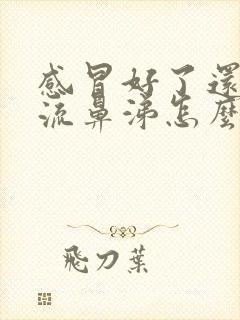 感冒好了還
流鼻涕怎麼
飛刀葉